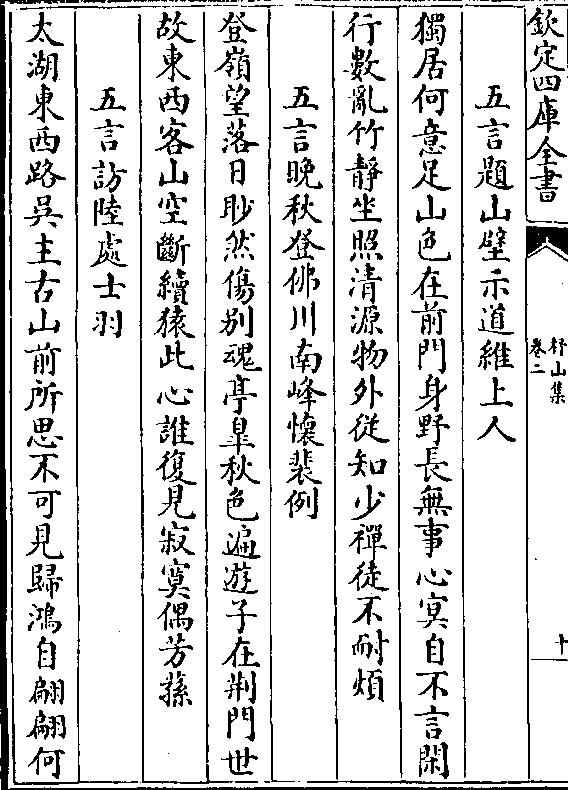 欽定四庫全書
杼山集
卷二
十
五言題山壁示道維上人
獨居何意足山色在前門身野長無事心冥自不言閑
行數亂竹靜坐照清源物外從知少禪徒不耐煩
五言晚秋登佛川南峰懷裴例
登嶺望落日眇然傷别魂亭臯秋色遍遊子在荆門世
故東西客山空斷續猿此心誰復見寂寞偶芳蓀
五言訪陸處士羽
太湖東西路吳主古山前所思不可見歸鴻自翩翩何